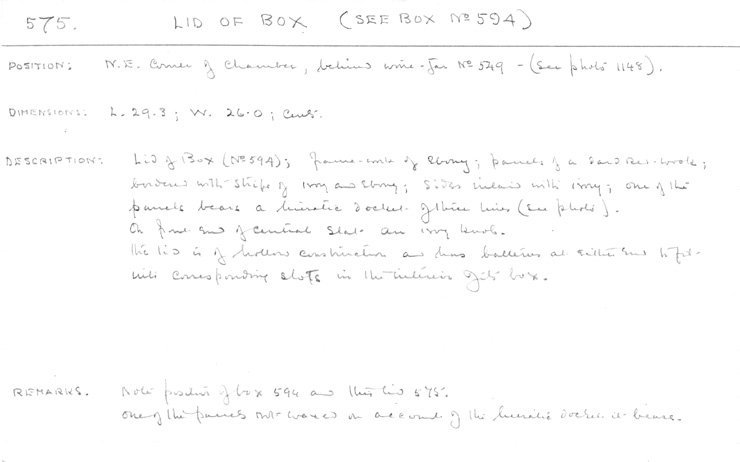 575. LID OF BOX (SEE BOX Nº 594)
POSITION: N.E. Corner of Chamber, behind wine-jar Nº 549 - (see photo 1148).
DIMENSIONS: L. 29.3; W. 26.0; Cms.
DESCRIPTION: Lid of Box (Nº 594); frame-work of Ebony; panels of a hard red-wood;
bordered with strips of ivory and ebony; sides inlaid with ivory; one of the
panels bears a hieratic docket of three lines (see photo).
On front end of central slat an ivory knob.
This lid is of hollow construction and has battens at either end to fit
into corresponding slots in the interior of its box.
REMARKS. Note position of box 594 and this lid 575.
One of the panels not waxed on account of the hieratic docket it bears.